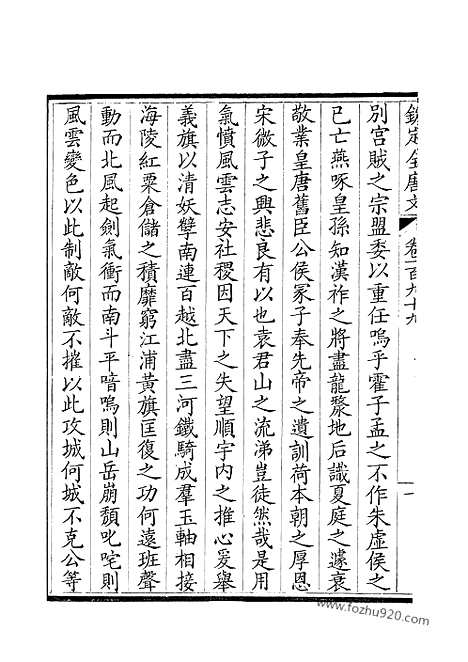 欽定全唐文 卷一百九十九 一
別宮賊之宗盟委以重任嗚乎霍子孟之不作朱虛侯之
已亡燕啄皇孫知漢祚之將盡龍漦帝后識夏庭之遽衰
敬業皇唐舊臣公侯冢子奉先帝之遺訓荷本朝之厚恩
宋微子之興悲良有以也袁君山之流涕豈徒然哉是用
氣憤風雲志安社稷因天下之失望順宇內之推心爰舉
義旗以清妖孽南連百越北盡三河鐵騎成羣玉軸相接
海陵紅粟倉儲之積靡窮江浦黃旗匡復之功何遠班聲
動而北風起劍氣衝而南斗平喑嗚則山岳崩頹叱咤則
風雲變色以此制敵何敵不摧以此攻城何城不克公等
www.fozhu920.com